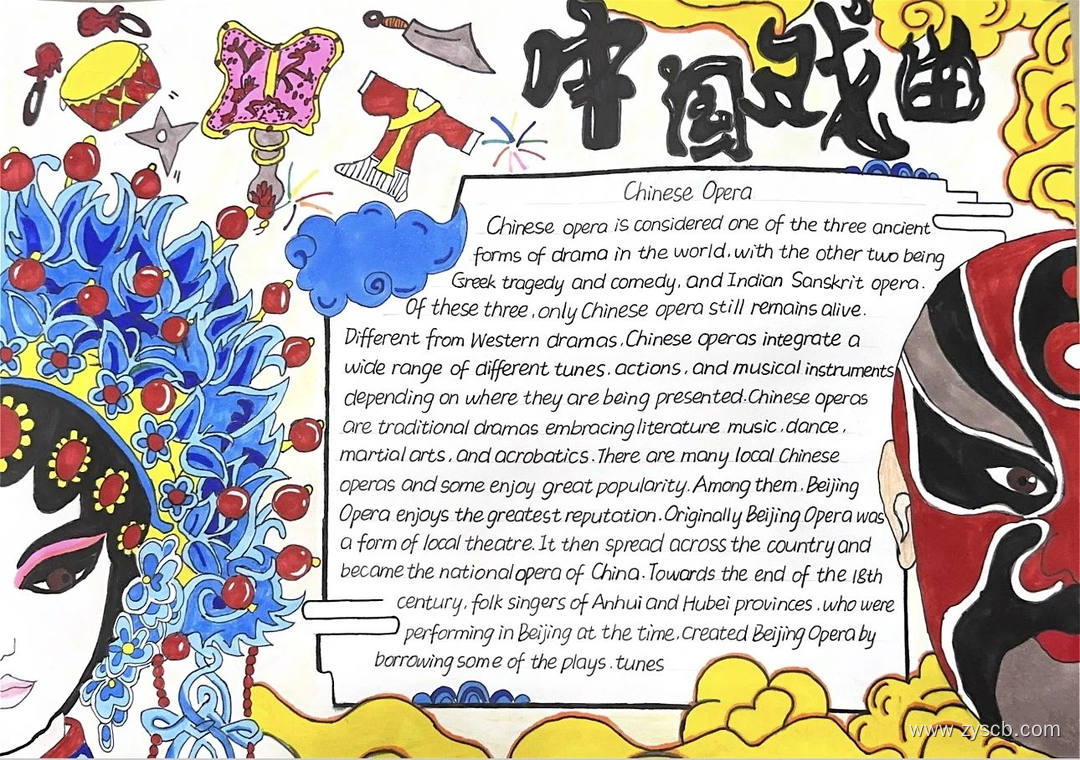 中国戏曲
Chinese Opera
Chinese opera is considered one of the three ancient
forms of drama in the world, with the other two being
Greek tragedy and comedy, and Indian Sanskrit opera.
Of these three, only Chinese opera still remains alive.
Different from Western dramas, Chinese operas integrate a
wide range of different tunes, actions, and musical instruments
depending on where they are being presented. Chinese operas
are traditional dramas embracing literature music, dance,
martial arts, and acrobatics. There are many local Chinese
operas and some enjoy great popularity. Among them, Beijing
Opera enjoys the greatest reputation. Originally Beijing Opera was
a form of local theatre. It then spread across the country and
became the national opera of China. Towards the end of the 18th
century, folk singers of Anhui and Hubei provinces, who were
performing in Beijing at the time, created Beijing Opera by
borrowing some of the plays, tunes
www.zyscb.com